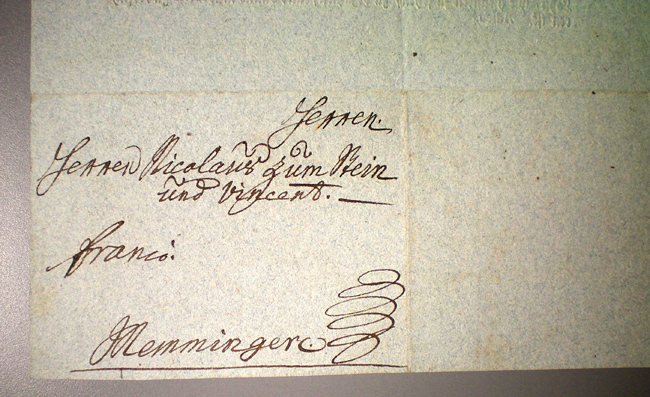 Herren
Herren Nicolaus zum Stein
und Vincent.
franco.
Memmingen